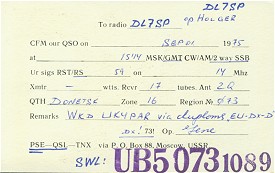 DL7SP
To radio DL7SP op HOLGER
CFM our QSO on SEP 01 1975
at 1514 MSK/GMT CW/AM/2 way SSB
Ur sigs RST/RS 59 on 14 Mhz
Xmtr — wtts. Rcvr 17 tubes. Ant 2Q
QTH DONETSK Zone 16 Region № 073
Remarks WKD UK4PAR via diploms, EU-DX-D
DX! 73! Op. Gene
PSE—QSL—TNX via P. O. Box 88, Moscow, USSR
SWL: UB5 073 1089